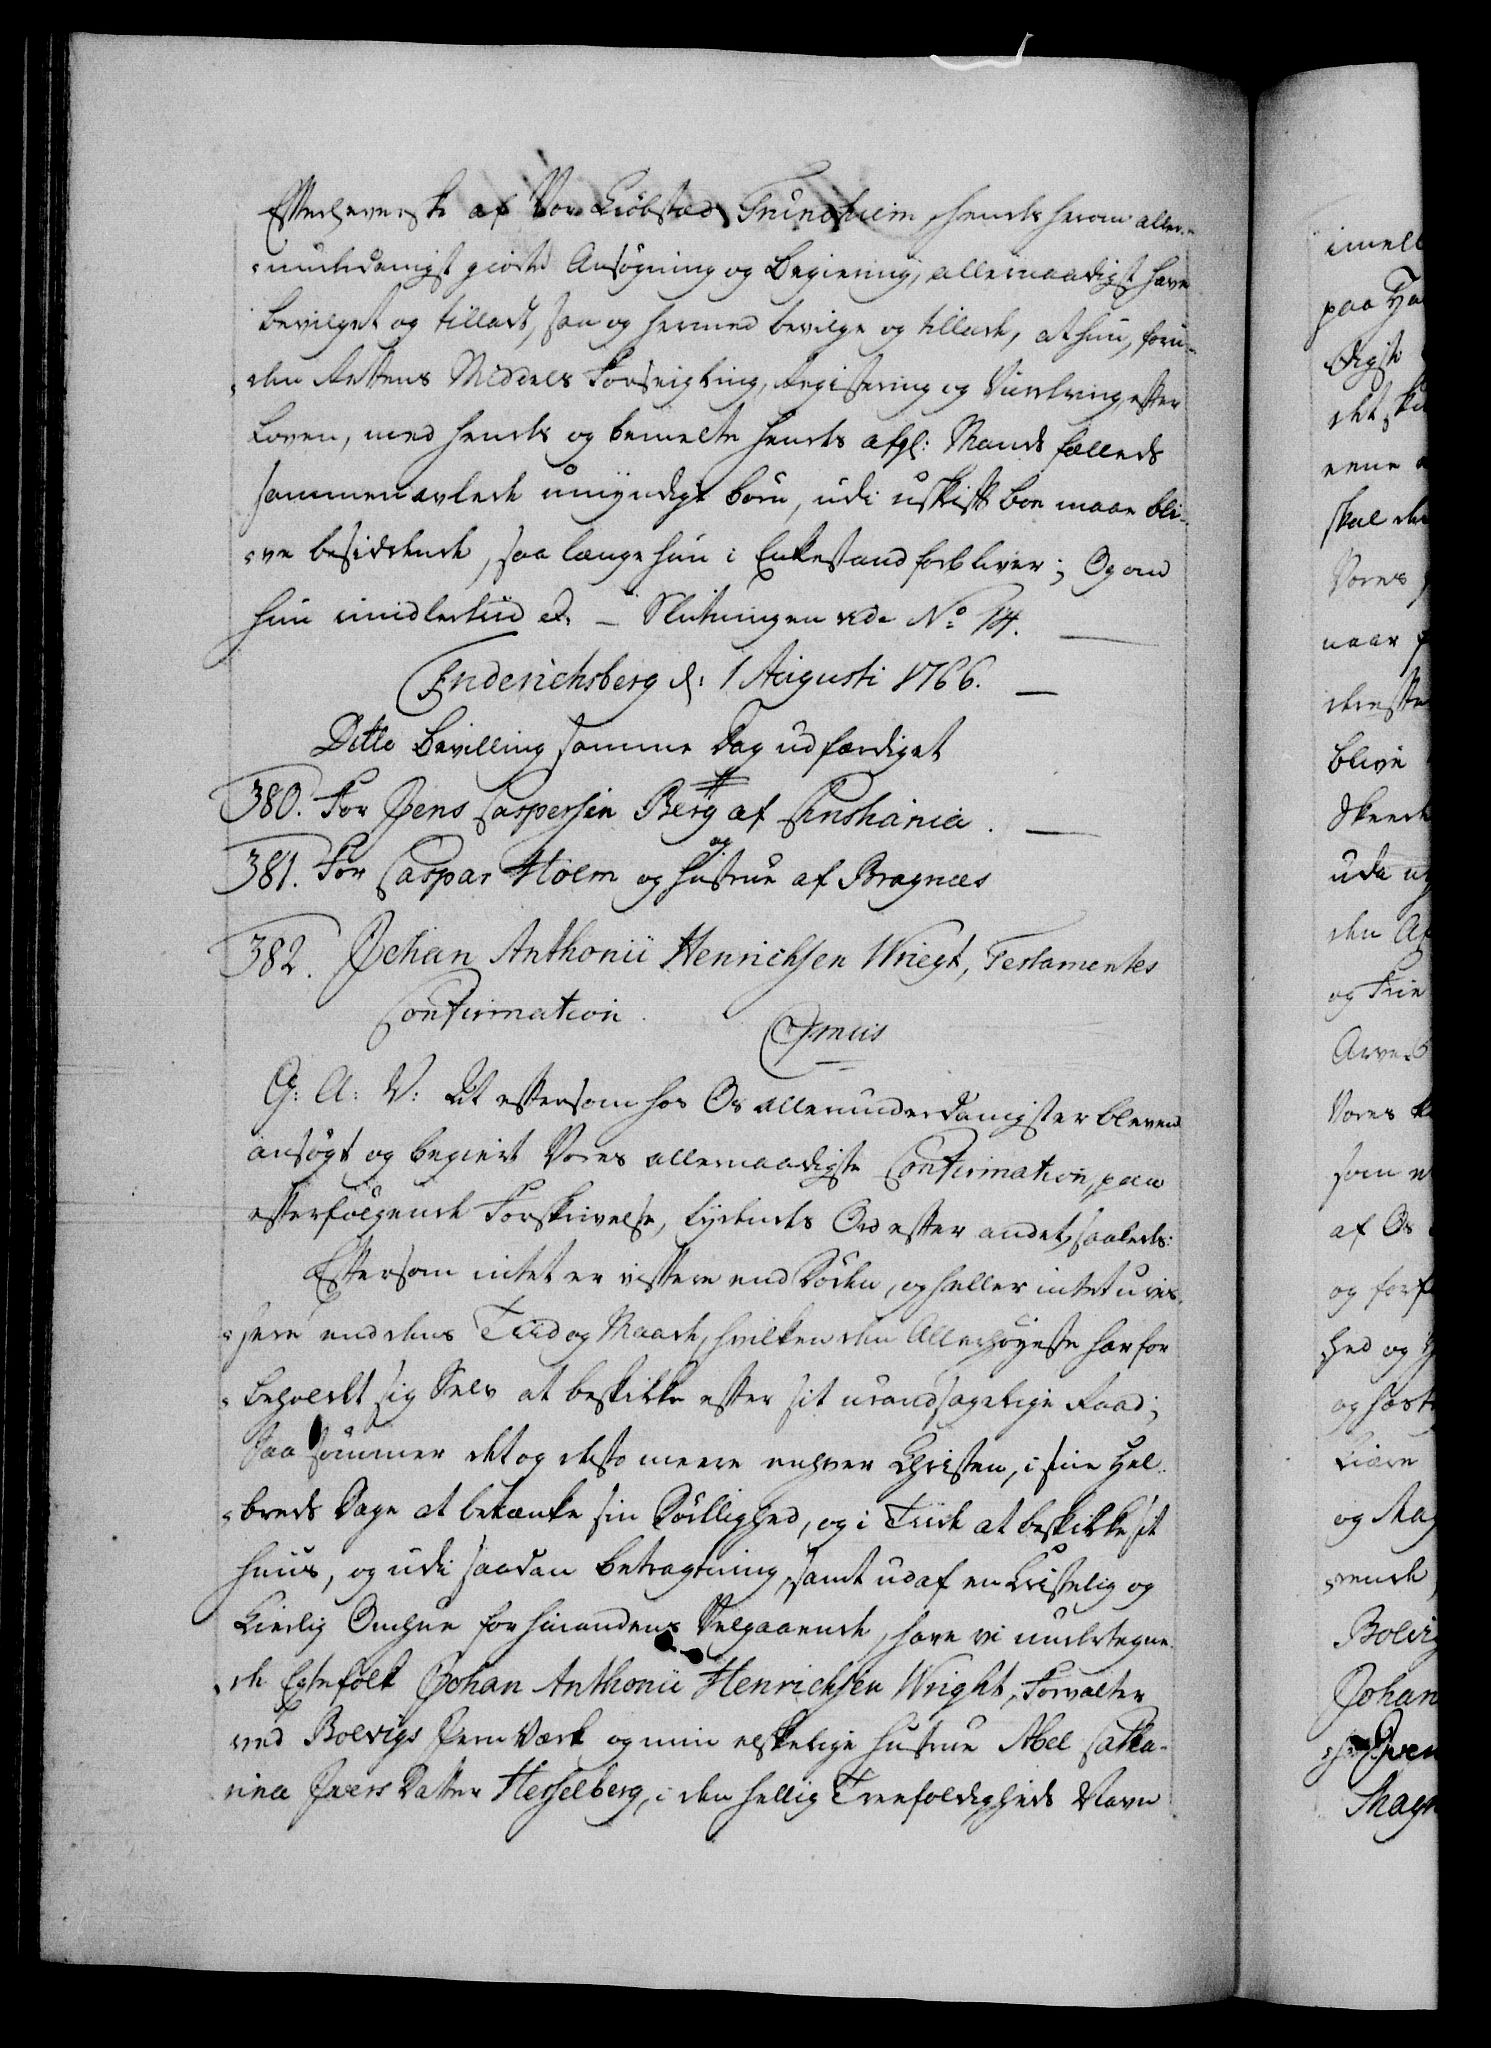 Efterleverske af Vor Kiøbsted Trundhiem, hendes herom aller-
underdanigst giorde Ansøgning og Begiering, allernaadigst have
bevilget og tilladt, saa og hermed bevilge og tillade, at hun, foru-
den Rettens Middels Forseigling, Registering og Vurdering, efter
Loven, med hendes og bemelte hendes afgl: Mands fælleds
sammenavlede umyndige børn, udi uskift boe maae bli-
ve besiddende, saa længe hun i Enkestand forbliver; Og om
hun imidlertiid &. — Slutningen vide No 14.
Friderichsberg d: 1 Augusti 1766.
Ditto Bevilling samme Dag udfærdiget
380. For Jens Caspersen Berg af Christiania.
381. For Caspar Holm og Hustrue af Bragnæs
og
382. Johan Anthonii Henrichsen Wriegt, Testamentes
Confirmation.
G: A: V: At eftersom hos Os allerunderdanigst er bleven
ansøgt og begiert Vores allernaadigste Confirmation, paa
efterfølgende Forskrivelse, lydendes Ord efter andet, saaledes:
Eftersom intet er vissere end Døden, og heller intet uvis-
sere end dens Tiid og Maade, hvilken den Allerhøyeste har for-
beholdt sig Selv at beskikke efter sit urandsagelige Raad;
Saa sømmer det og desto meere enhver Christen, i sine Hel-
breds Dage at betænke sin Dødlighed, og i Tiide at beskikke sit
Huus, og udi saadan betragtning, samt udaf en Christelig og
Kierlig Omhue for hinandens Velgaaende, have vi undertegne-
de Egtefolk Johan Anthonii Henrichsen Wright, Forvalter
ved Bolvigs Jern Værk og min elskelige Hustrue Abel Catha-
rina Ivers Datter Hesselberg, i den hellig Treefoldigheds Navn